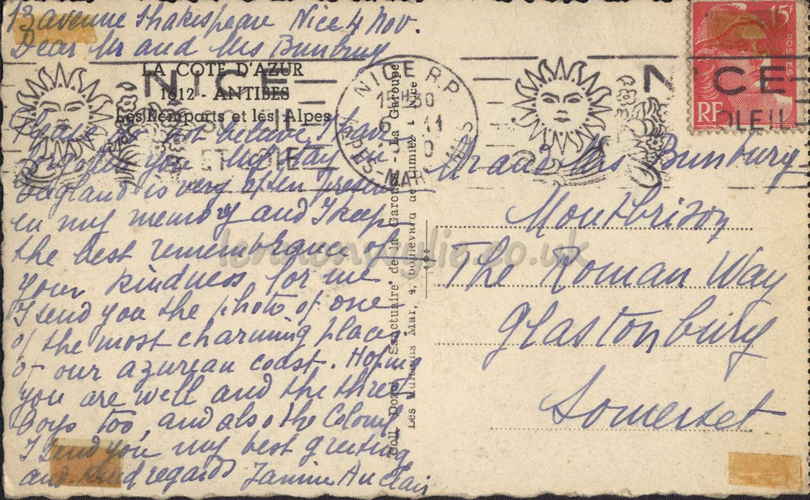 13 avenue Shakespeare Nice 4 Nov.
Dear Mr and Mrs Bunbury
LA COTE D'AZUR
1612 - ANTIBES
Les Remparts et les Alpes
Please do not believe I have
forgotten you. My stay in
England is very often present
in my memory and I keep
the best remembrance of
your kindness for me
I send you the photo of one
of the most charming place
of our azurean coast. Hoping
you are well and the three
boys too, and also the Colony
I send you my best greeting
and kind regards Janine Auclair
NICE R.P.
ALPES-MARITIMES
NICE
SOLEIL
15F
POSTES
RF
Mr and Mrs Bunbury
Montbrison
The Roman Way
Glastonbury
Somerset
lennonwylie.co.uk